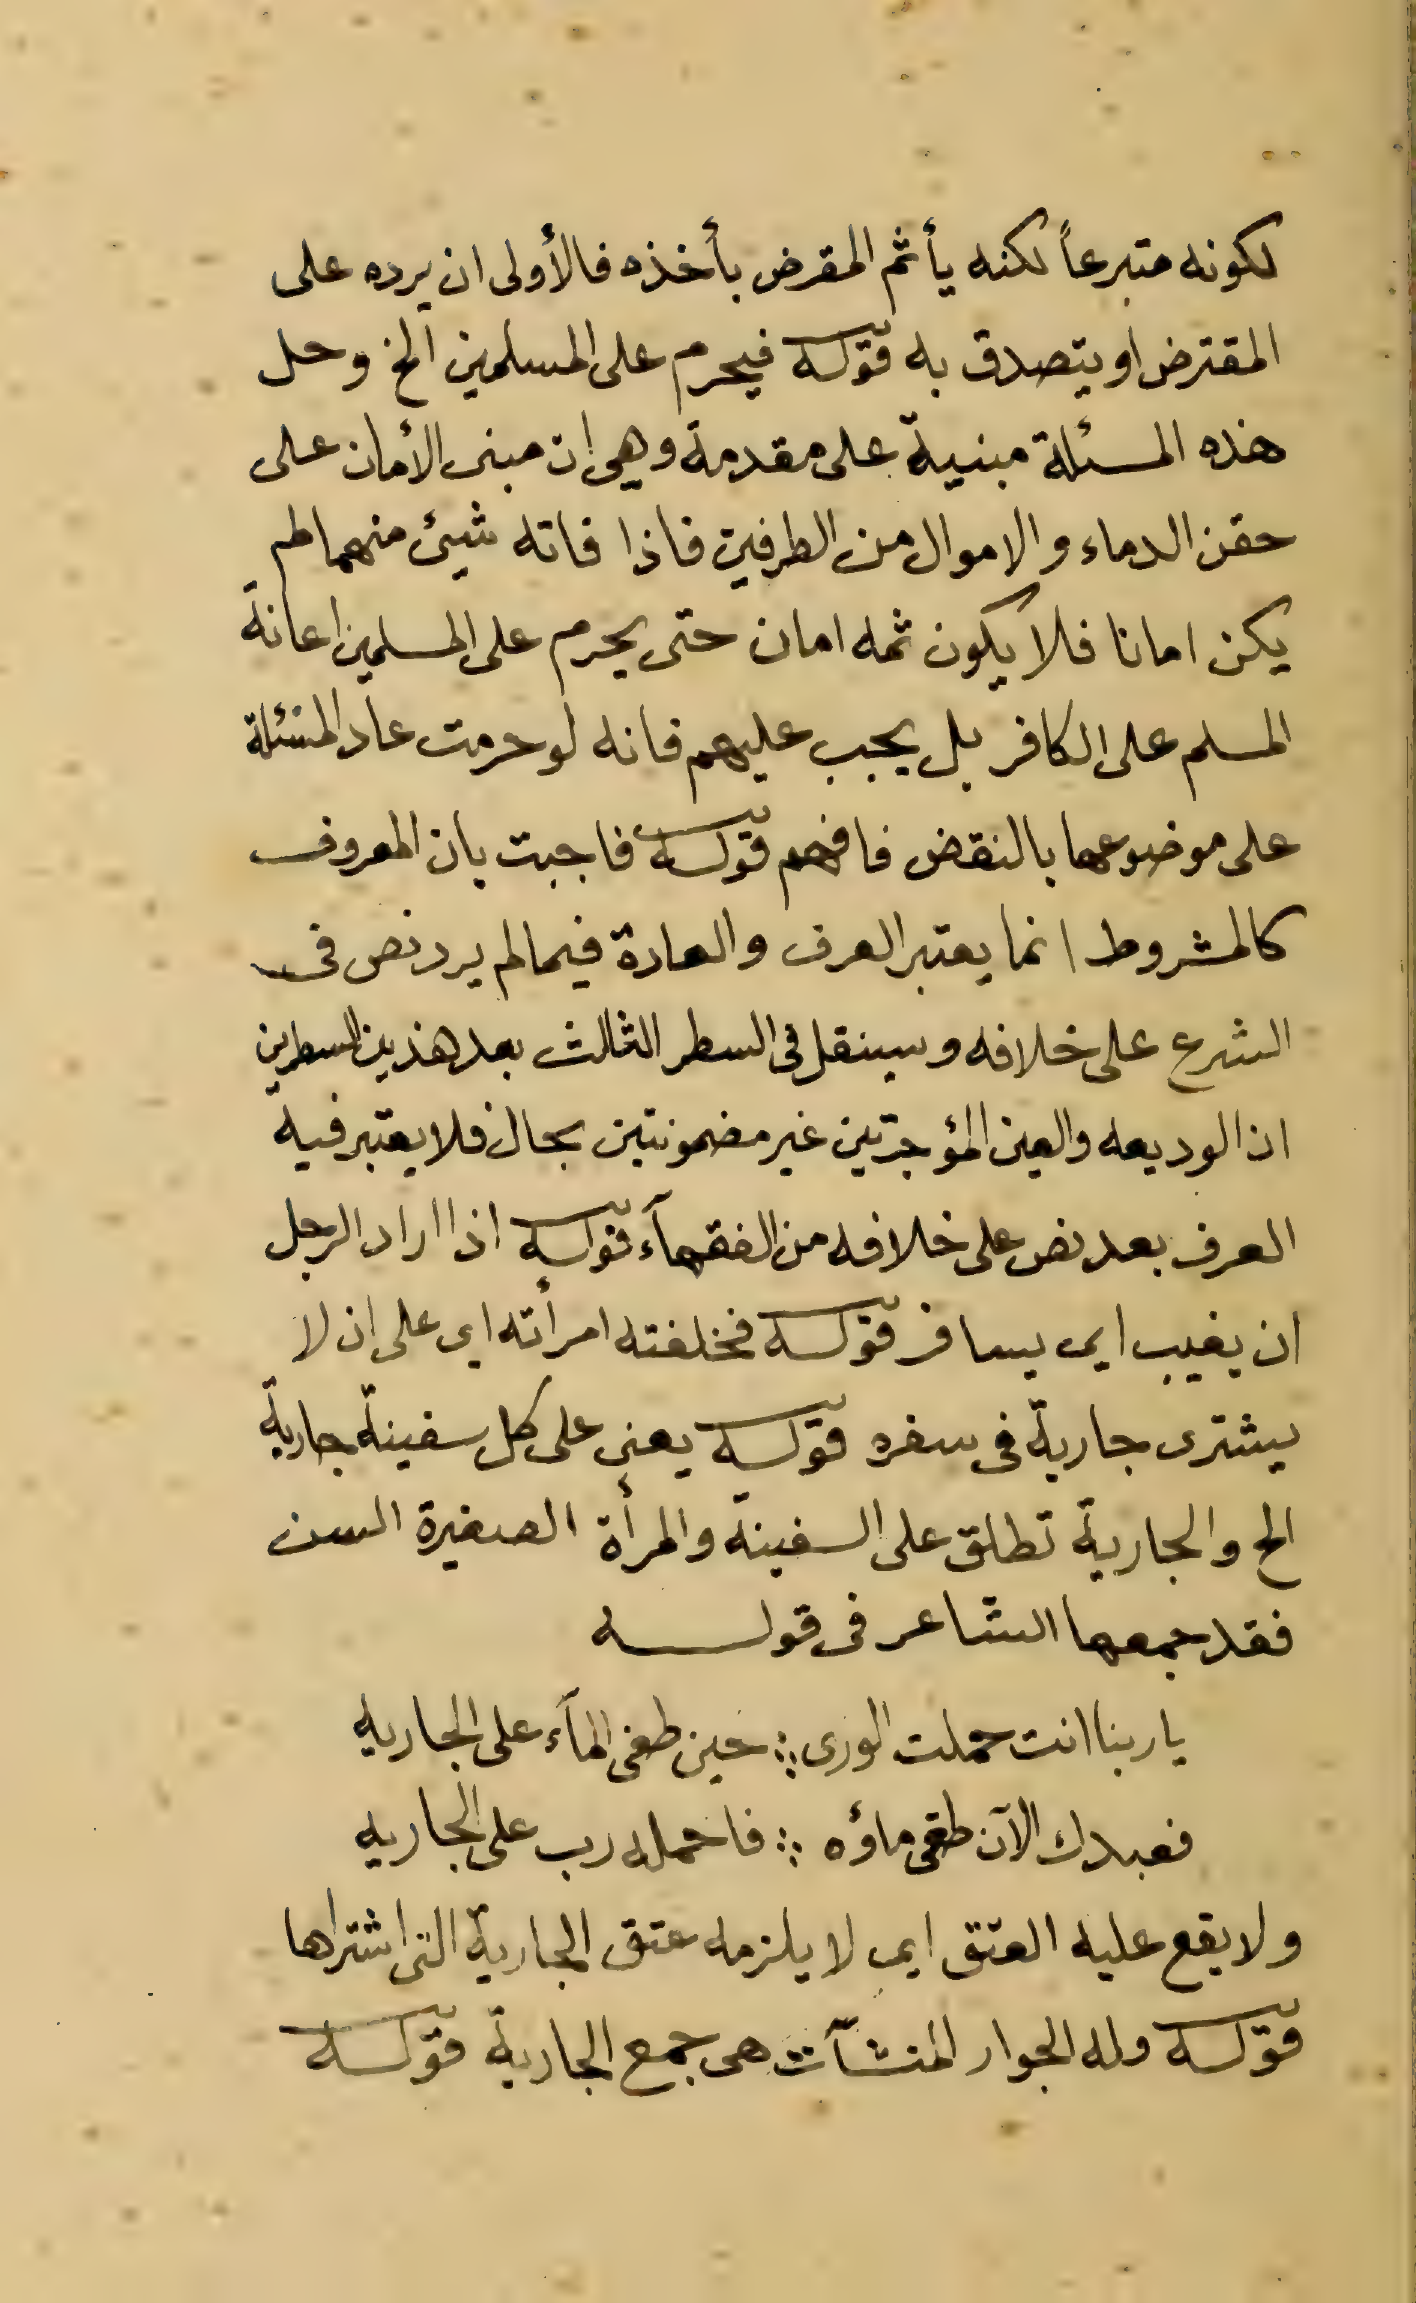 لكونه متبرعاً لكنه يأثم المقرض بأخذه فالأولى ان يرده على
المقترض او يتصدق به قوله فيحرم على المسلمين الخ وحل
هذه المسئلة مبنية على مقدمة وهي ان مبنى الأمان على
حقن الدماء والاموال من الطرفين فاذا فاته شيئ منهما لم
يكن امانا فلا يكون ثمه امان حتى يحرم على المسلمين اعانة
المسلم على الكافر بل يجب عليهم فانه لو حرمت عاد المسئلة
على موضوعها بالنقض فافهم قوله فاجبت بان المعروف
كالمشروط انما يعتبر العرف والعادة فيما لم يرد نص في
الشرع على خلافه وسينقل في السطر الثالث بعد هذين السطرين
ان الوديعه والعين المؤجرتين غير مضمونتين بحال فلا يعتبر فيه
العرف بعد نص على خلافه من الفقهآء قوله اذا اراد الرجل
ان يغيب اي يسافر قوله فخلفته امرأته اي على ان لا
يشترى جارية في سفره قوله يعني على كل سفينة جارية
الخ والجارية تطلق على السفينة والمرأة الصغيرة السن
فقد جمعها الشاعر في قوله
يا ربنا انت حملت الورى ∴ حين طغى المآء على الجاريه
فعبدك الآن طغى ماؤه ∴ فاحمله رب على الجاريه
ولا يقع عليه العتق اي لا يلزمه عتق الجارية التي اشتراها
قوله وله الجوار المنشآت هي جمع الجارية قوله